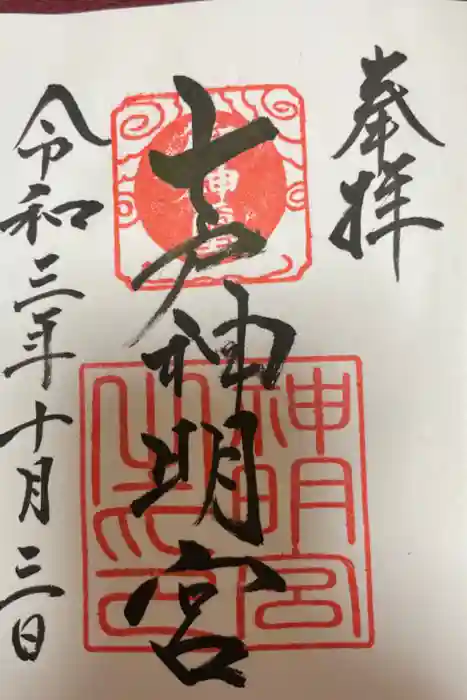 奉拝
七戸神明宮
令和三年十月三日
神明宮